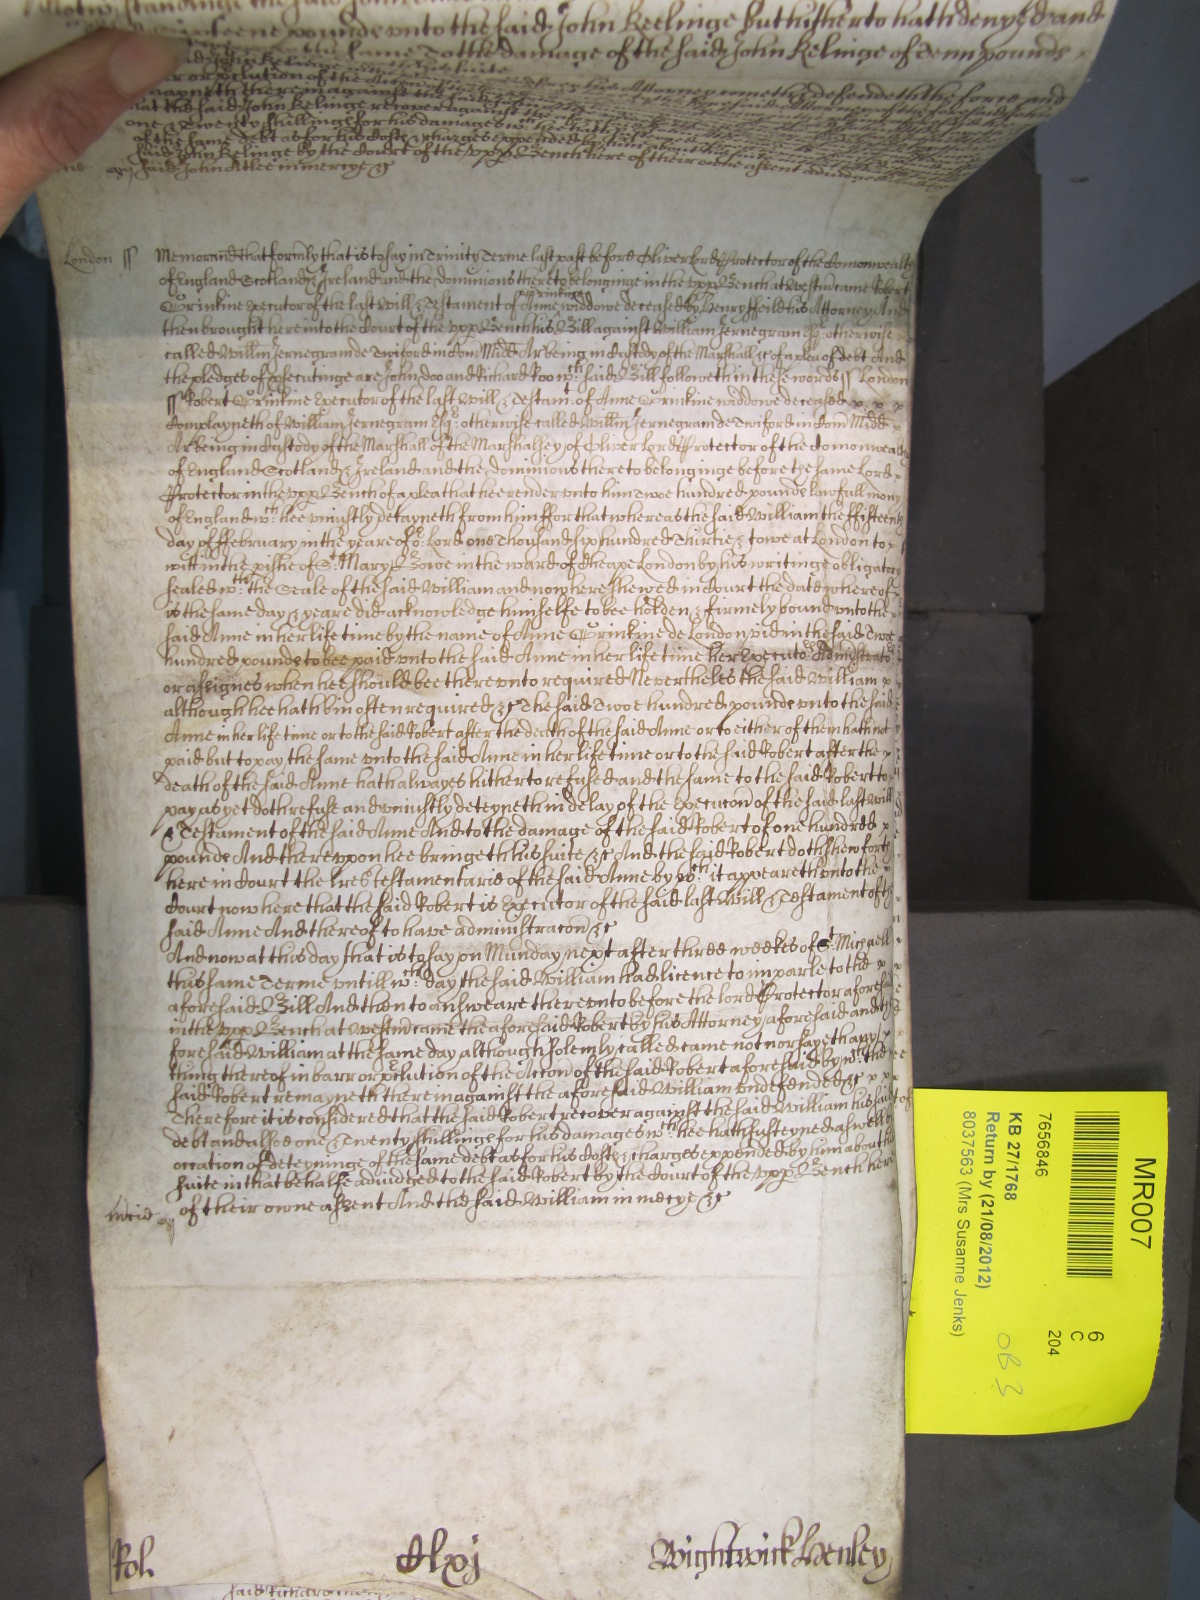 pounds unto the said John Keelinge but hitherto hath denyed and
the same To the damage of the said John Kelinge of Tenn pounds
that the said John Kelinge recover against
one & Twenty shillings for his damages
of the same debt as for his Costs & charges expended
said John Kelinge by the Court of the upp Bench here of their owne assent adiudged
said John Atlee in mercye &c
London ss Memorand that formly that is to say in Trinity Terme last past before Oliver Lord Protector of the Comonwealth
of England Scotland & Ireland and the dominions thereto belonginge in the upp Bench at Westm came Robert
Brinkine executor of the last Will & Testament of Anne Brinkine widdowe deceased by Henry Feild his Attorney And
then brought here into the Court of the upp Bench his Bill against William Jernegram Esq otherwise
called Willm Jernegram de Twiford in Com Midd Ar being in Custody of the Marshall &c of a plea of debt And
the pledges of psecutinge are John Doo and Richard Roo wch said Bill followeth in these words ss London
ss Robert Brinkine Executor of the last Will & Testamt of Anne Brinkine widdowe deceased
Complayneth of William Jernegram Esq otherwise called Willm Jernegram de Twiford in Com Midd
Ar being in Custody of the Marshall of the Marshalsey of Oliver Lord Protector of the Comonwealth
of England Scotland & Ireland and the dominions there to belonginge before the same Lord
Protector in the upp Bench of a plea that hee render unto him twoe hundred pounds lawfull mony
of England wch hee uniustly detayneth from him ffor that whereas the said William the ffifteenth
day of ffebruary in the yeare of or Lord one Thousand six hundred Thirtie & towe at London to
witt in the pishe of St Mary Bowe in the ward of Cheape London by his writinge obligatory
sealed wth the Seale of the said William and now here shewed in Court the date whereof
is the same day & yeare did acknowledge himselfe to bee holden & firmely bound unto the
said Anne in her life time by the name of Anne Brinkine de London vid in the said Twoe
hundred pounds to bee paid unto the said Anne in her life time her Executors Administrators
or assignes when hee should bee thereunto required Nevertheles the said William
although hee hath bin often required &c The said Twoe hundred pounds unto the said
Anne in her life time or to the said Robert after the death of the said Anne or to either of them hath not
paid but to pay the same unto the said Anne in her life time or to the said Robert after the
death of the said Anne hath alwayes hitherto refused and the same to the said Robert to
pay as yet doth refuse and uniustly deteyneth in delay of the execucon of the said last Will
& Testament of the said Anne And to the damage of the said Robert of one hundred
pounds And thereuppon hee bringeth his suite &c And the said Robert doth shew forth
here in Court the lres testamentarie of the said Anne by wch it appeareth unto the
Court now here that the said Robert is Executor of the said last Will & Testament of the
said Anne And thereof to have administracon &c
And now at this day that is to say on Munday next after three weekes of St Michaell
this same Terme untill wch day the said William had licence to imparle to the
aforesaid Bill And then to answeare thereunto before the lord Protector aforesaid
in the upp Bench at Westm came the aforesaid Robert by his Attorney aforesaid and the
foresaid William at the same day although solemly called came not nor sayeth any
thing thereof in barr or pclution of the Accon of the said Robert aforesaid by wch the
said Robert remayneth therein against the aforesaid William undefended &c
Therefore it is considered that the said Robert recover against the said William his said
debt and alsoe one & Twenty shillings for his damages wch hee hath susteyned aswell by
occation of deteyninge of the same debt as for his Costs & charges expended by him about his
suite in that behalfe adiudged to the said Robert by the Court of the upp Bench here
of their owne assent And the said William in mercye &c
Rol. Clxj Wightwick Henley
MR007
6
C
204
7656846
KB 27/1768
Return by (21/08/2012)
8037563 (Mrs Susanne Jenks)
OB 3